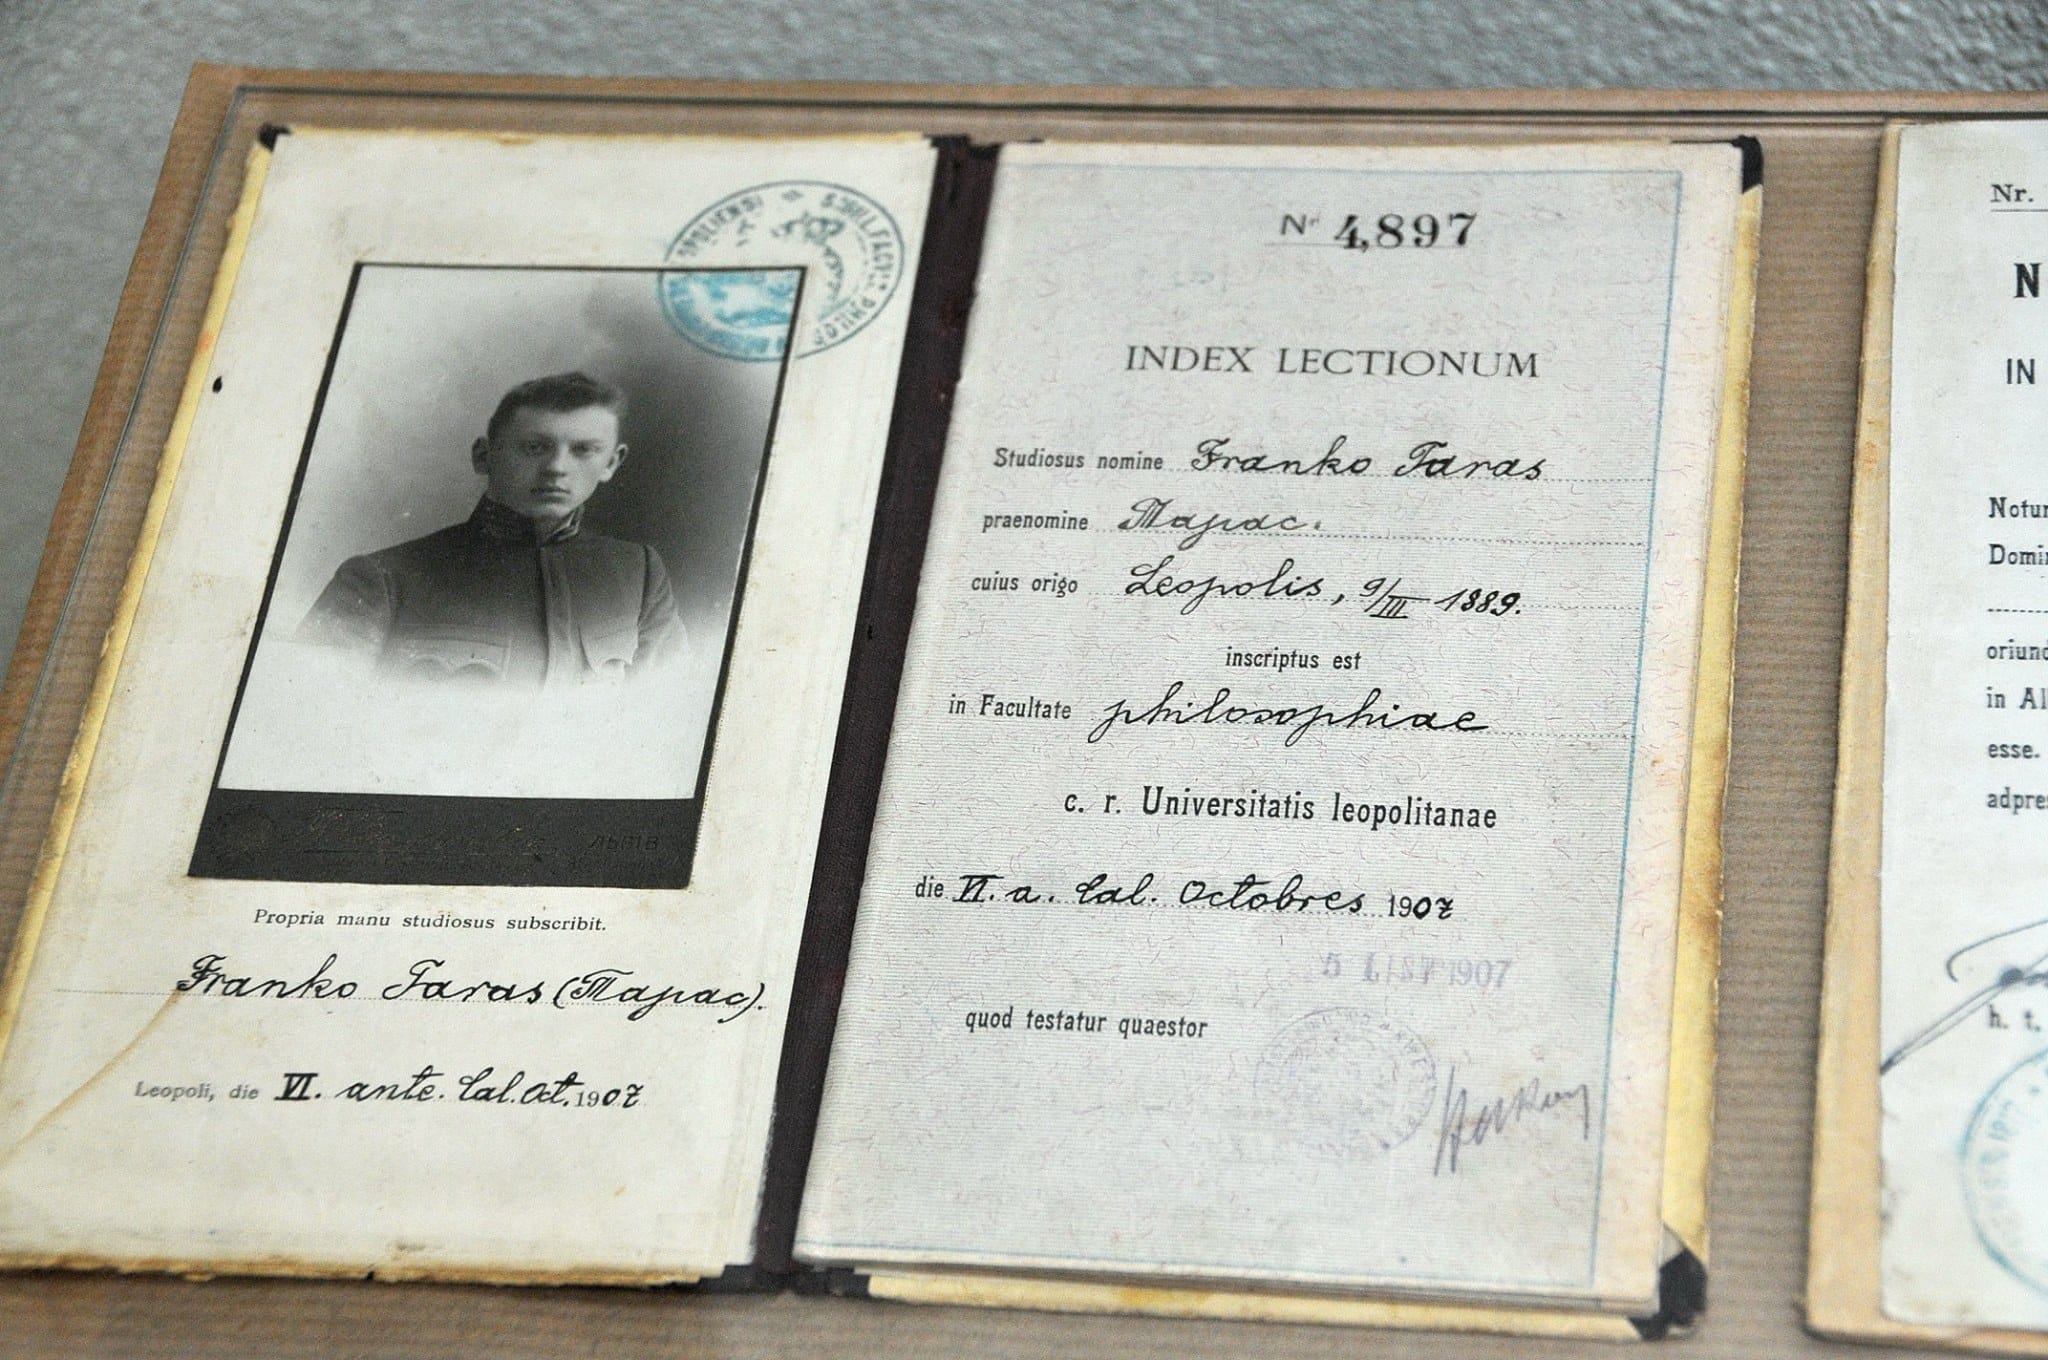 ЛЬВІВ
Propria manu studiosus subscribit.
Franko Taras (Тарас).
Leopoli, die VI. ante. Cal. Oct. 1907
Nr 4,897
INDEX LECTIONUM
Studiosus nomine Franko Taras
praenomine Тарас.
cuius origo Leopolis, 9/III 1889.
inscriptus est
in Facultate philosophiae
c. r. Universitatis leopolitanae
die VI. a. Cal. Octobres 1907
5 LIST 1907
quod testatur quaestor
Nr.
N
IN
esse.
h. t.